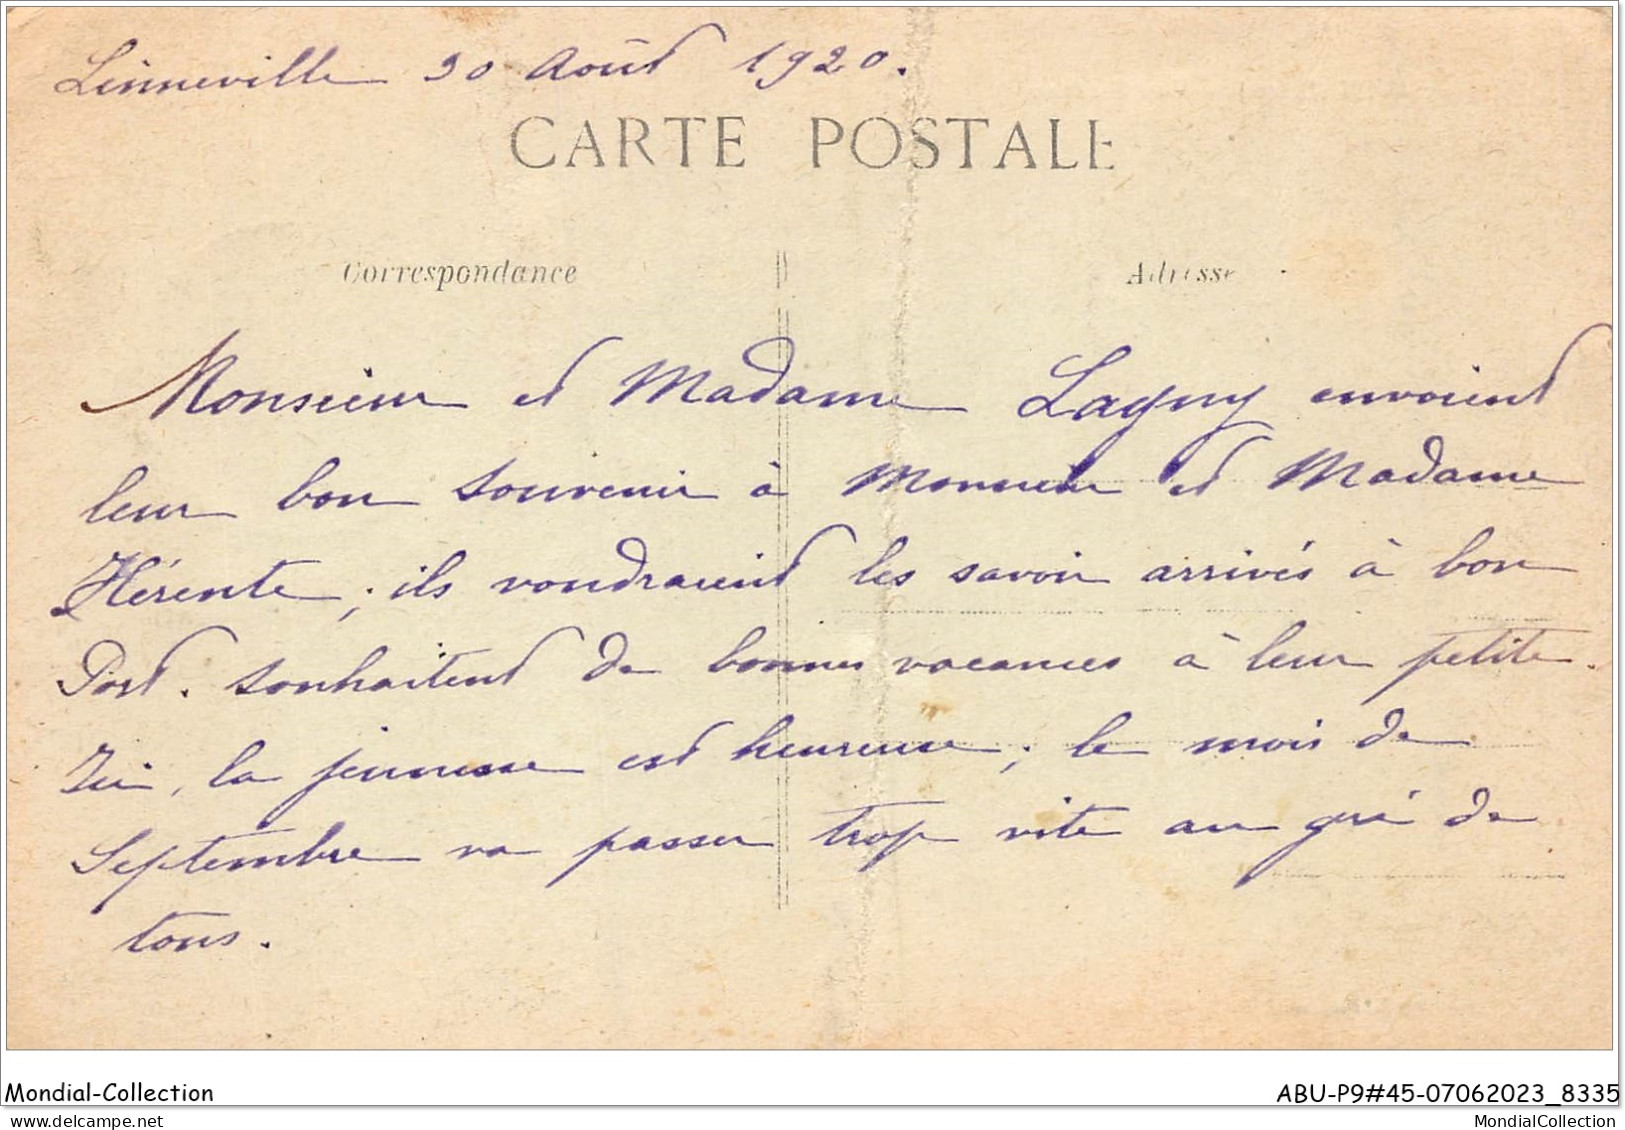 30 Août 1920.
CARTE POSTALE
Correspondance
Adresse
Monsieur et Madame Lagny envoient
leur bon souvenir à Monsieur et Madame
Hérente ; ils voudraient les savoir arrivés à bon
Port. souhaitent de bonnes vacances à leur petite
la jeunesse est heureuse ; le mois de
Septembre va passer trop vite au gré de
tous.
Mondial-Collection
ABU-P9#45-07062023_8335
delcampe.net
MondialCollection